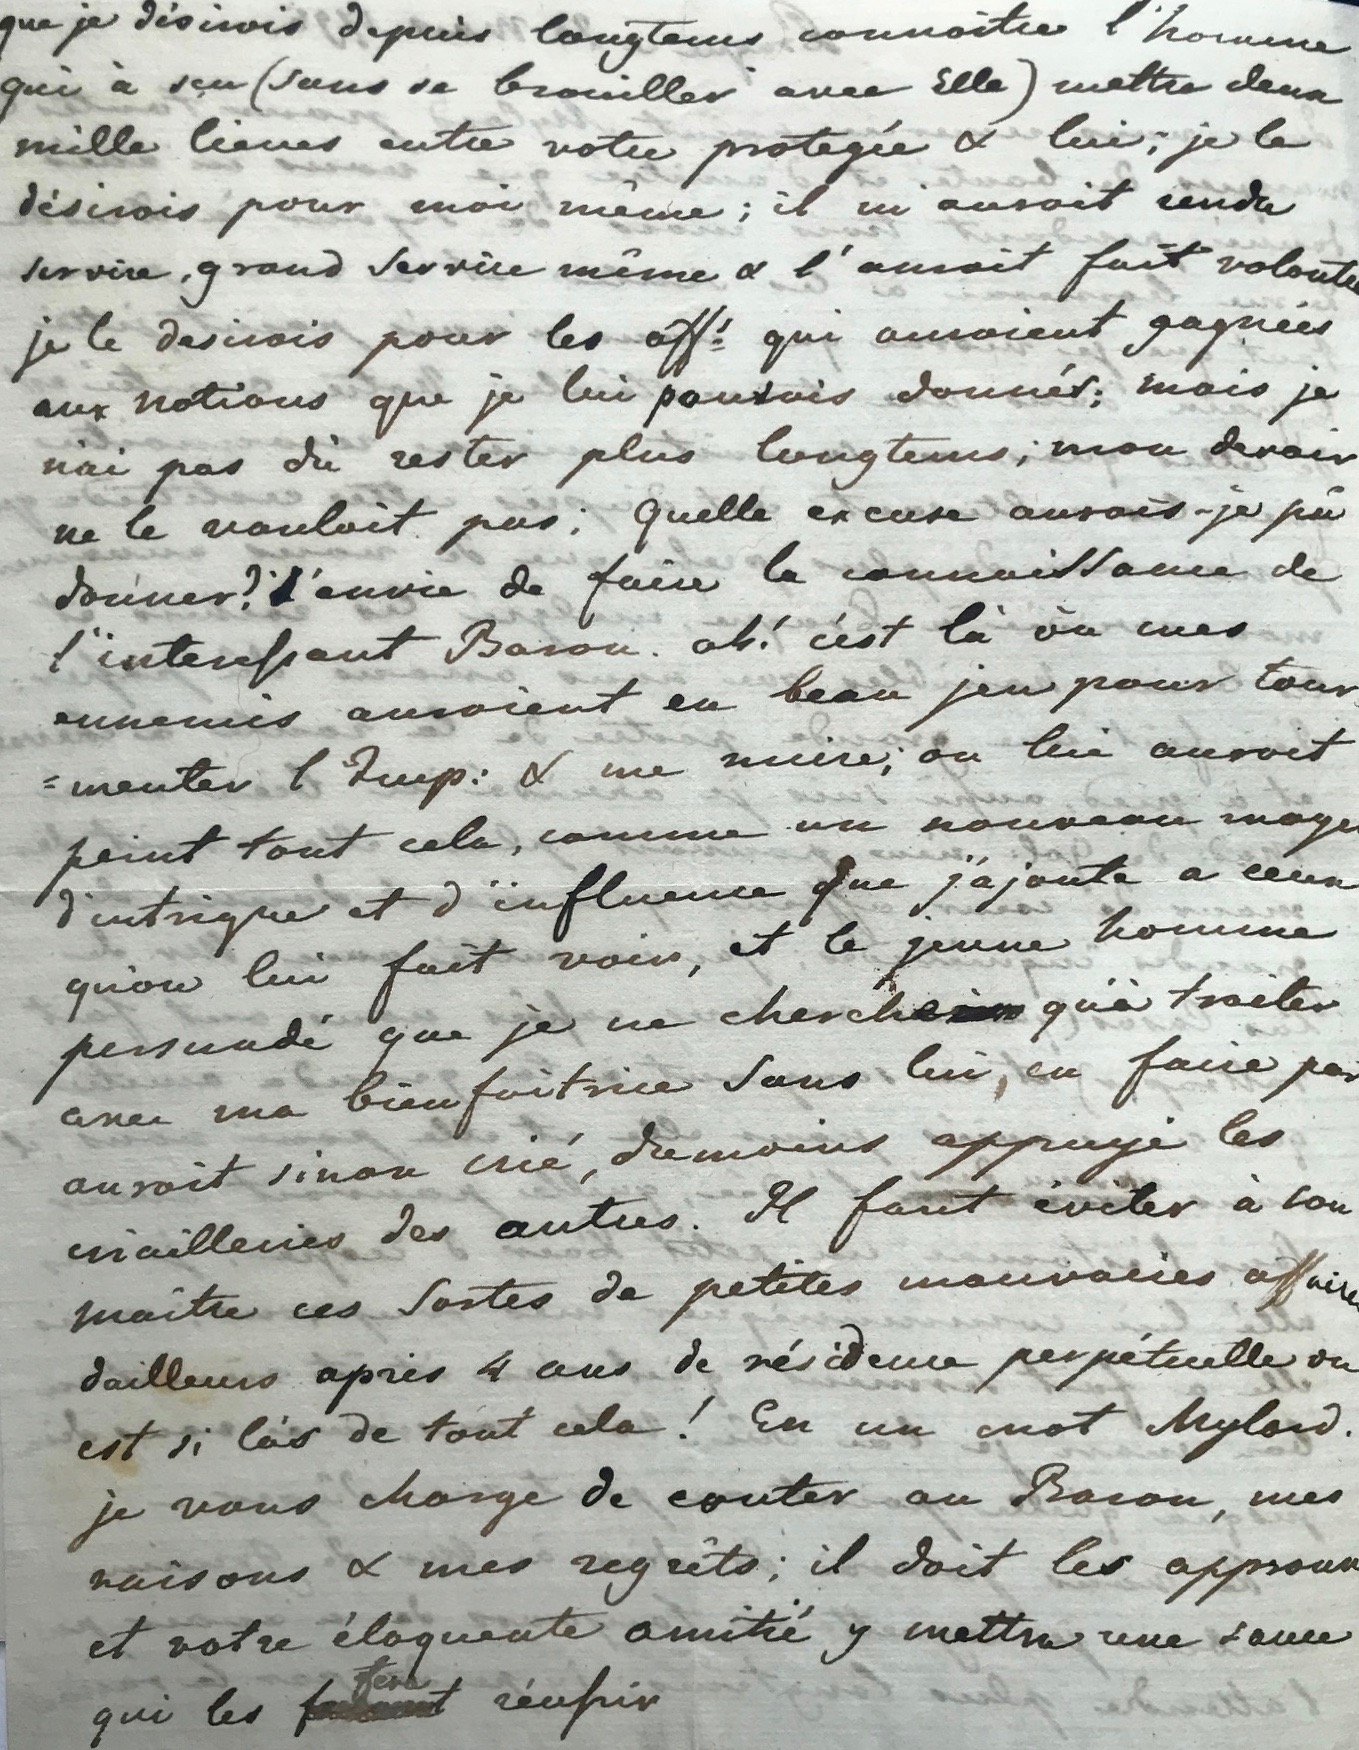 que je désirois depuis longtems connoître l'homme
qui à sçu (sans se brouiller avec Elle) mettre deux
mille lieues entre votre protegée & lui; je le
désirois pour moi même; il m'auroit rendu
service, grand service même & l'auroit fait volontie
je le desirois pour les aff.s qui auroient gagnées
aux notions que je lui pouvois donner; mais je
n'ai pas dû rester plus longtems; mon devoir
ne le vouloit pas; Quelle excuse aurois-je pû
donner? L'envie de faire la connoissance de
l'interessant Baron. ah! c'est là òu mes
ennemis auroient eu beau jeu pour tour
=menter l'Imp: & me nuire; on lui auroit
peint tout cela, comme un nouveau moye
d'intrigue et d'influence que j'ajoute a ceux
qu'on lui fait voir, et le jeune homme
persuadé que je ne cherche qu'à traiter
avec ma bienfaitrice sans lui, en faire par
auroit sinon crié, dumoins appuyé les
criailleries des autres. Il faut éviter à son
maître ces sortes de petites mauvaises affaires
dailleurs après 4 ans de résidence perpétuelle on
est si làs de tout cela! En un mot Mylord.
je vous charge de conter au Baron, mes
raisons & mes regrêts; il doit les approuv
et votre éloquente amitié y mettra une sauce
qui les fera réussir